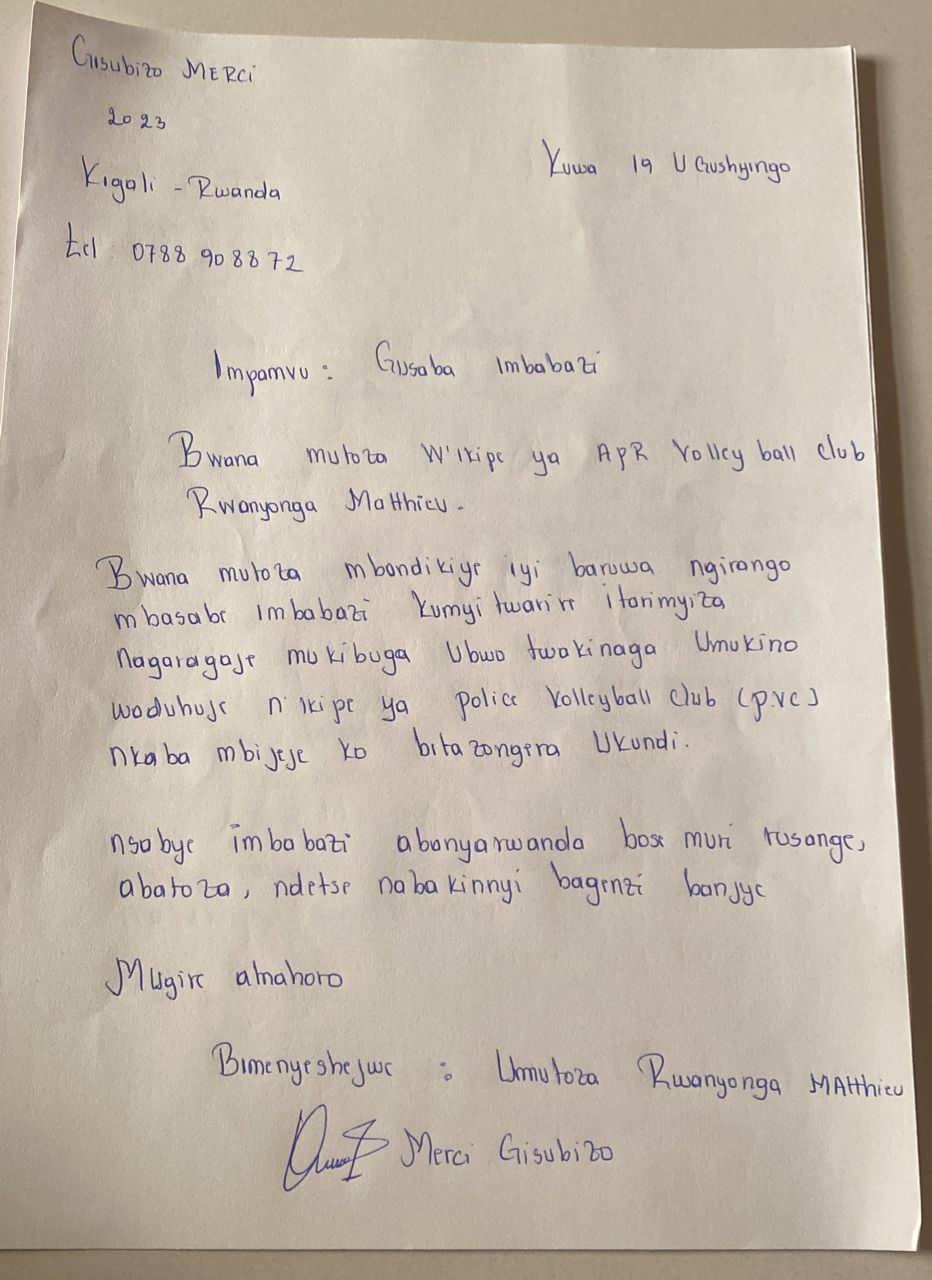 Gisubizo MERCi
2023
Kuwa 19 UGushyingo
Kigali - Rwanda
tel 0788 90 88 72
Impamvu : Gusaba imbabazi
Bwana mutoza W'ikipe ya APR Volley ball club
Rwanyonga Matthieu.
Bwana mutoza mbandikiye iyi baruwa ngirango
mbasabe imbabazi kumyitwarire itarimyiza
nagaragaje mukibuga Ubwo twakinaga Umukino
waduhuje n'ikipe ya police Volleyball Club (p.v.c)
nkaba mbijeje ko bitazongera Ukundi.
nsabye imbabazi abanyarwanda bose muri rusange,
abatoza, ndetse nabakinnyi bagenzi banjye
Mugire amahoro
Bimenyeshejwe : Umutoza Rwanyonga MAtthieu
Merci Gisubizo